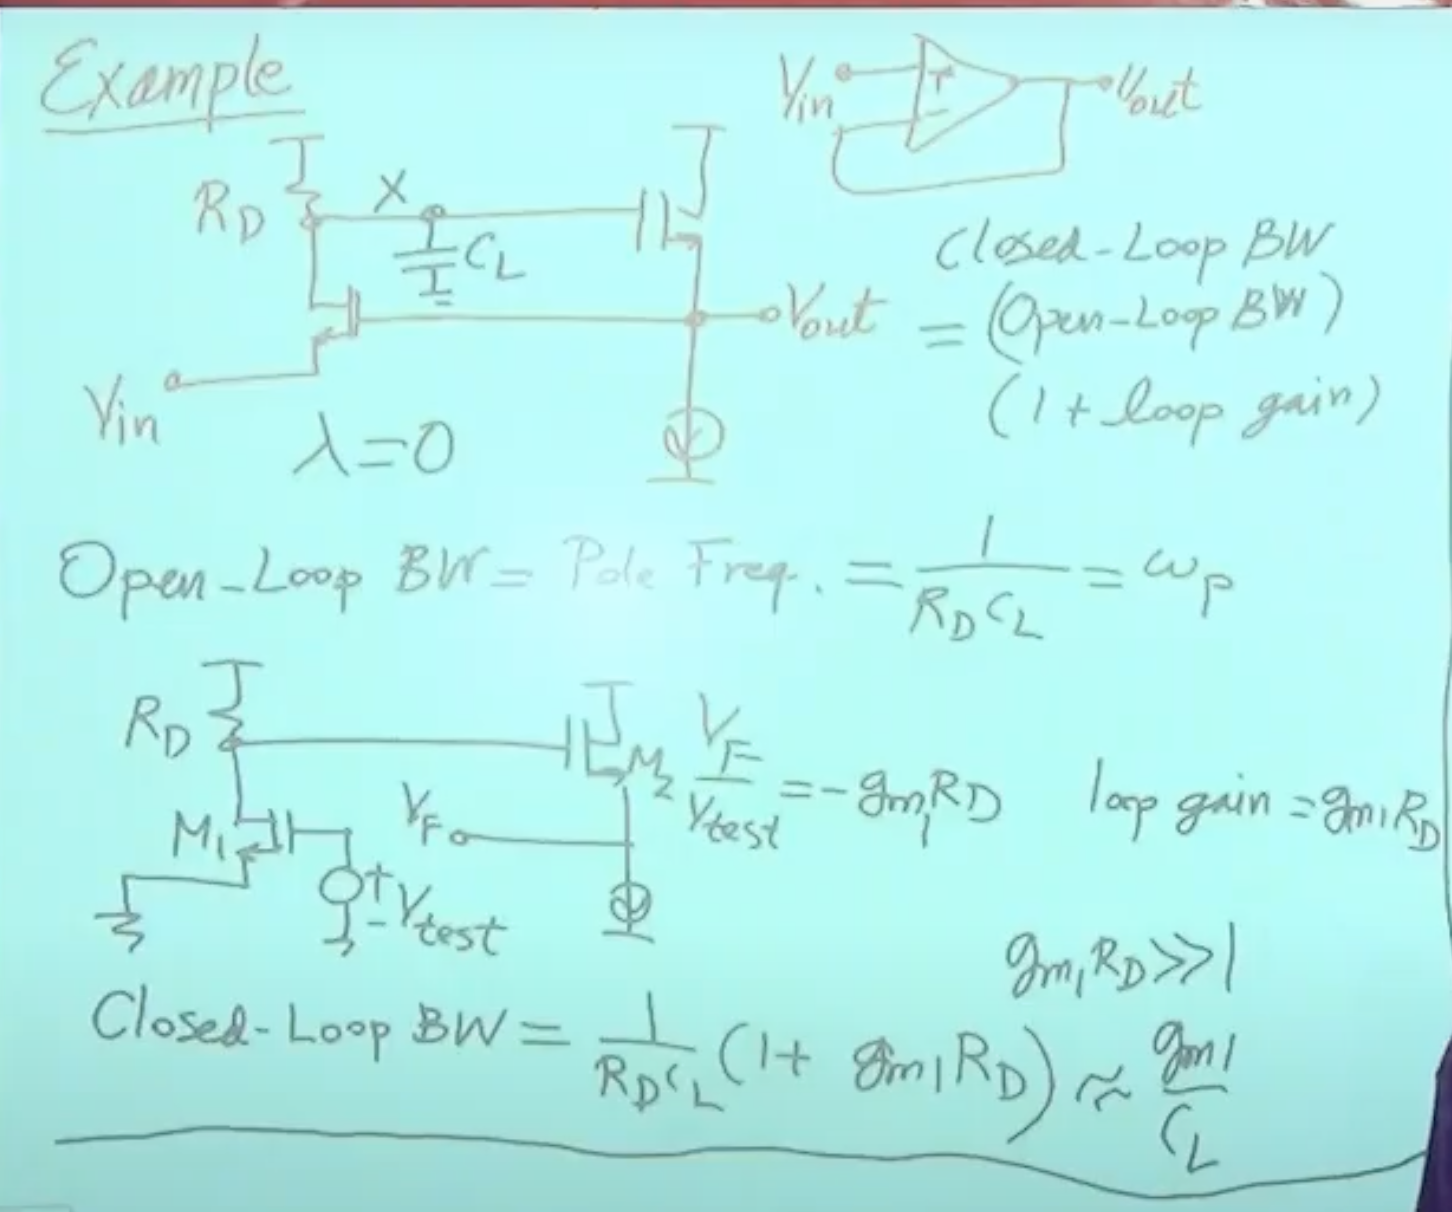 Example
Vin + - Vout
RD X CL
Vout
Vin
λ=0
Closed-Loop BW
= (Open-Loop BW)
(1 + loop gain)
Open-Loop BW = Pole Freq. = 1/(RD CL) = ωp
RD
M1
M2
VF
+ - Vtest
VF/Vtest = -gm1RD loop gain = gm1RD
gm1RD >> 1
Closed-Loop BW = 1/(RD CL) (1 + gm1RD) ≈ gm1/CL